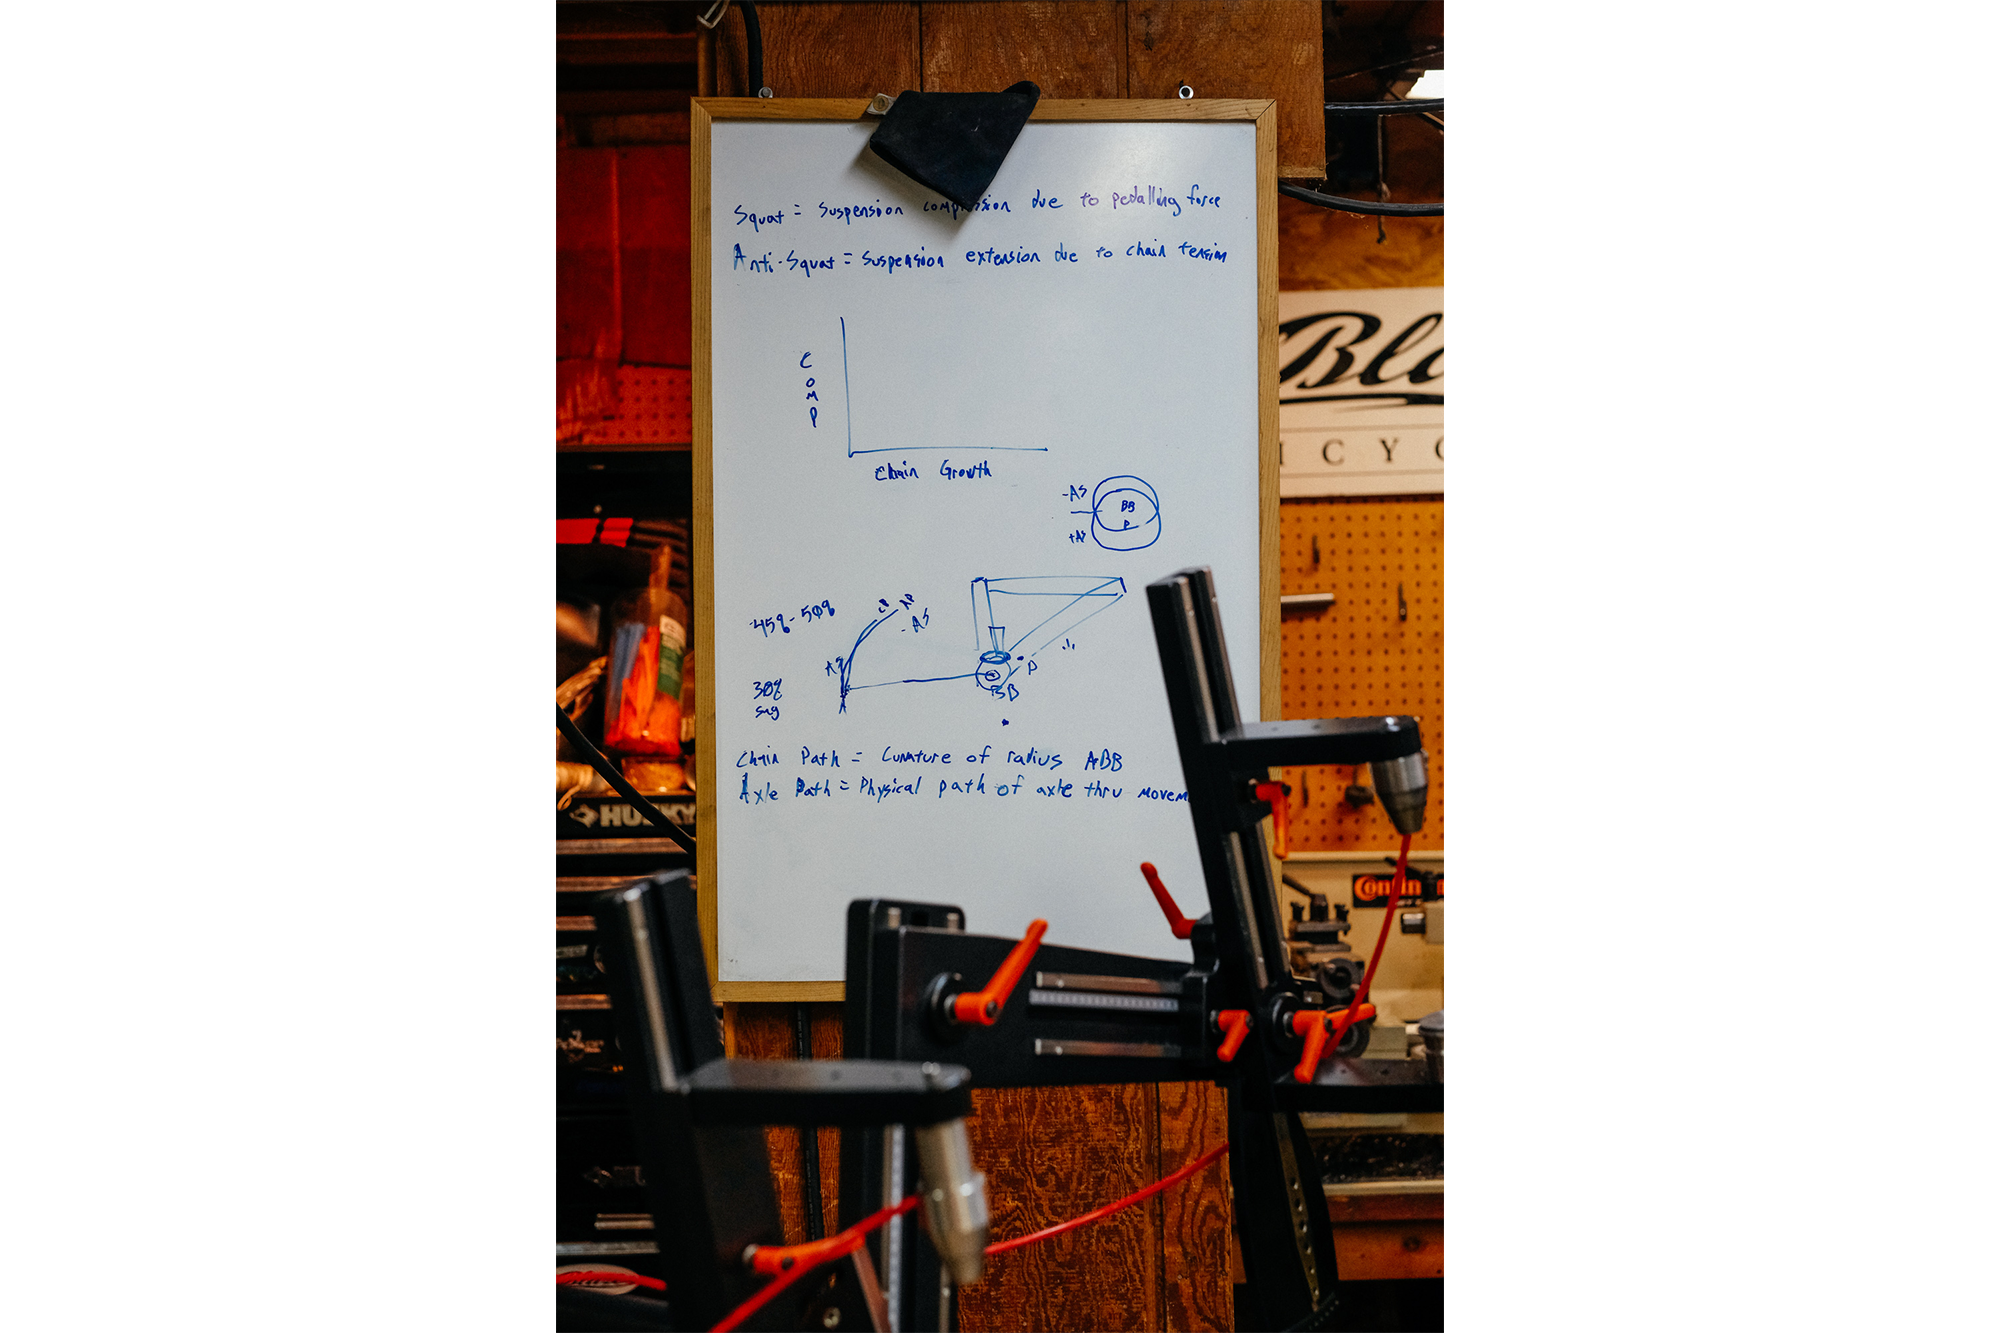 Squat = Suspension compression due to pedalling force
Anti-Squat = Suspension extension due to chain tension
COMP
Chain Growth
-AS
BB
P
+AS
45%-50%
CP AP
-AS
A
30%
sag
P
BB
Chain Path = Curvature of radius ABB
Axle Path = Physical path of axle thru movem
Bla
ICYC
HUSKY